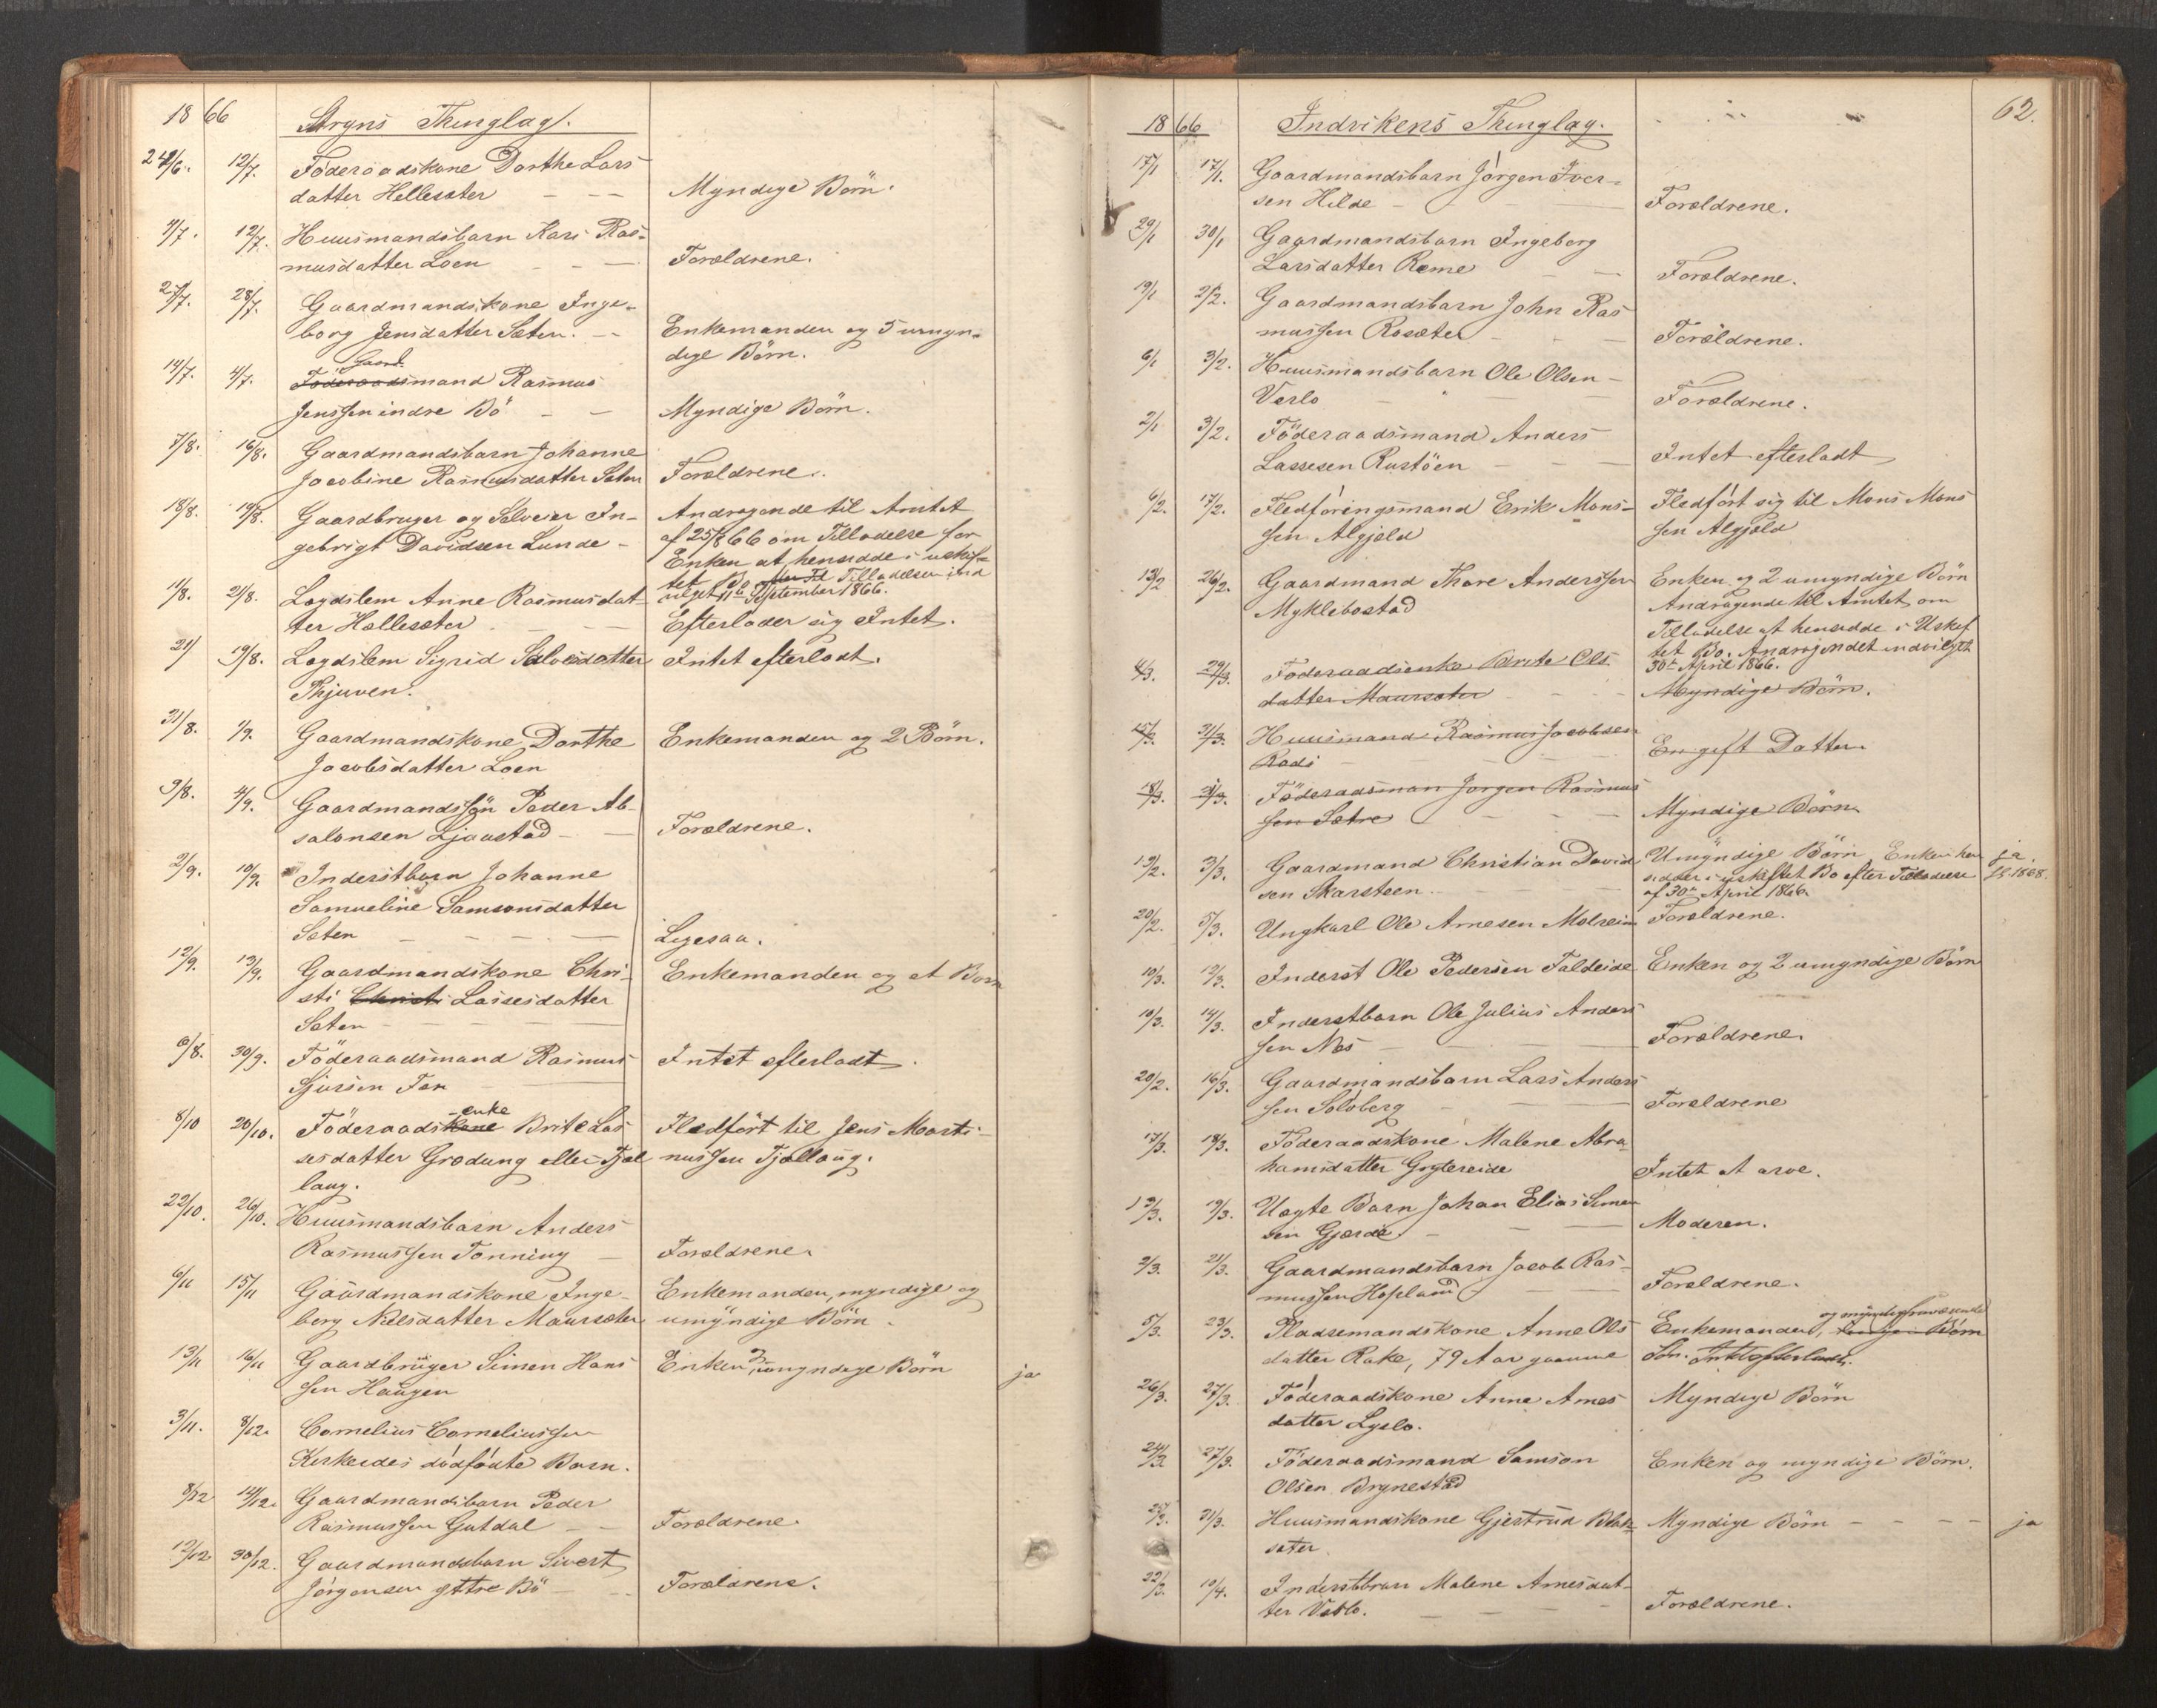 1866 Stryns Thinglag.
24/6. 12/7. Föderaadskone Dorthe Lars
datter Hellesæter — — Myndige Börn.
4/7. 12/7. Huusmandsbarn Kari Ras-
musdatter Loen — — Forældrene.
27/7. 28/7. Gaardmandskone Inge-
borg Jensdatter Sæten. — Enkemanden og 5 umyn-
dige Börn.
Gaard
14/7. 4/7. Föderaadsmand Rasmus
Jenssen indre Bö — — Myndige Börn.
7/8. 16/8. Gaardmandsbarn Johanne
Jacobine Rasmusdatter Sæten Forældrene.
18/8. 19/8. Gaardbruger og Selveier In- Andragende til Amtet
gebrigt Davidsen Lunde — af 25/8 66 om Tilladelse for
Enken at hensidde i uskif-
tet Bo Tilladelsen ind
vilget 11te September 1866.
11/8. 21/8. Lægdslem Anne Rasmusdat-
ter Hellesæter — — Efterlader sig Intet.
21/ 19/8. Lægdslem Sigrid Salvesdatter Intet efterladt.
Thjuven.
31/8. 1/9. Gaardmandskone Dorthe Enkemanden og 2 Börn.
Jacobsdatter Loen
9/8. 4/9. Gaardmandssön Peder Ab-
salonsen Ljaastad — — Forældrene.
2/9. 10/9. Inderstbarn Johanne
Samueline Samsonsdatter
Sæten — — — Ligesaa.
12/9. 13/9. Gaardmandskone Chri- Enkemanden og et Barn
sti Christi Lassesdatter
Sæten — — —
6/8. 30/9. Föderaadsmand Rasmus Intet efterladt.
Sjursen Fær —
-enke
8/10 20/10. Föderaadskone Brite Las Fledfört til Jens Marti-
sesdatter Grødung eller Tjel nussen Tjellaug.
laug.
22/10. 26/10. Huusmandsbarn Anders
Rasmussen Tonning — Forældrene.
6/11 15/11 Gaardmandskone Inge- Enkemanden, myndige og
borg Nilsdatter Maursæter umyndige Börn.
13/11 16/11 Gaardbruger Simen Hans Enken 3 umyndige Börn ja
sen Haugen
3/11. 8/12. Cornelius Corneliussen
Kirkeides dödfödte Barn.
8/12 14/12. Gaardmandsbarn Peder
Rasmussen Gutdal — Forældrene.
12/12 30/12. Gaardmandsbarn Sivert
Jörgensen yttre Bö — Forældrene.
62.
1866 Indvikens Thinglag.
17/1 17/1. Gaardmandsbarn Jörgen Iver-
sen Hilde — — Forældrene.
29/1 30/1 Gaardmandsbarn Ingeborg
Larsdatter Reme — — Forældrene.
19/1 2/2. Gaardmandsbarn John Ras
mussen Rosæter — — Forældrene.
6/1 3/2. Huusmandsbarn Ole Olsen —
Verlo — — — Forældrene.
2/1 3/2. Föderaadsmand Anders
Lassesen Rustöen — — Intet efterladt
6/2. 17/2. Fledföringsmand Erik Mons- Fledfört sig til Mons Mons
sen Algjeld sen Algjeld
13/2 26/2. Gaardmand Thore Anderssen Enken og 2 umyndige Börn
Myklebostad Andragende til Amtet om
Tilladelse at hensidde i Uskif
tet Bo. Andragendet indvilget
30te April 1866.
4/3. 29/3. Föderaadsenke Brite Ols
datter Maursæter — — Myndige Börn.
15/3. 31/3. Huusmand Rasmus Jacobsen
Rödi — — En gift Datter.
18/3. 31/3. Föderaadsman Jörgen Rasmus
sen Sætre — — Myndige Börn
19/2. 3/3. Gaardmand Christian David Umyndige Börn Enken hen ja.
sen Skarsteen. sidder i uskiftet Bo efter Tilladelse
af 30te April 1866.
20/2. 5/3. Ungkarl Ole Arnesen Molreim Forældrene.
10/3. 12/3. Inderst Ole Pedersen Faldeide Enken og 2 umyndige Börn
10/3. 14/3. Inderstbarn Ole Julius Anders
sen Nes — — Forældrene.
20/2. 16/3. Gaardmandsbarn Lars Anders
sen Solvberg — — Forældrene
17/3. 18/3. Föderaadskone Malene Abra
hamsdatter Grytereide Intet at arve.
13/3. 19/3. Uægte Barn Johan Elias Simen
sen Gjærde. — — Moderen.
2/3. 21/3. Gaardmandsbarn Jacob Ras-
mussen Hopland — — Forældrene.
5/3. 23/3. Pladsemandskone Anne Ols Enkemanden, Börn
datter Rake, 79 Aar gammel Sön. Intet efterladt.
26/3. 27/3. Föderaadskone Anne Arnes Myndige Börn
datter Lyslo.
24/3 27/3. Föderaadsmand Samson Enken og myndige Börn.
Olsen Brynestad
31/3. Huusmandskone Gjertrud Blak- Myndige Börn — — — ja
sæter
22/3. 10/4. Inderstbarn Malene Arnesdat-
ter Verlo. — — Forældrene.